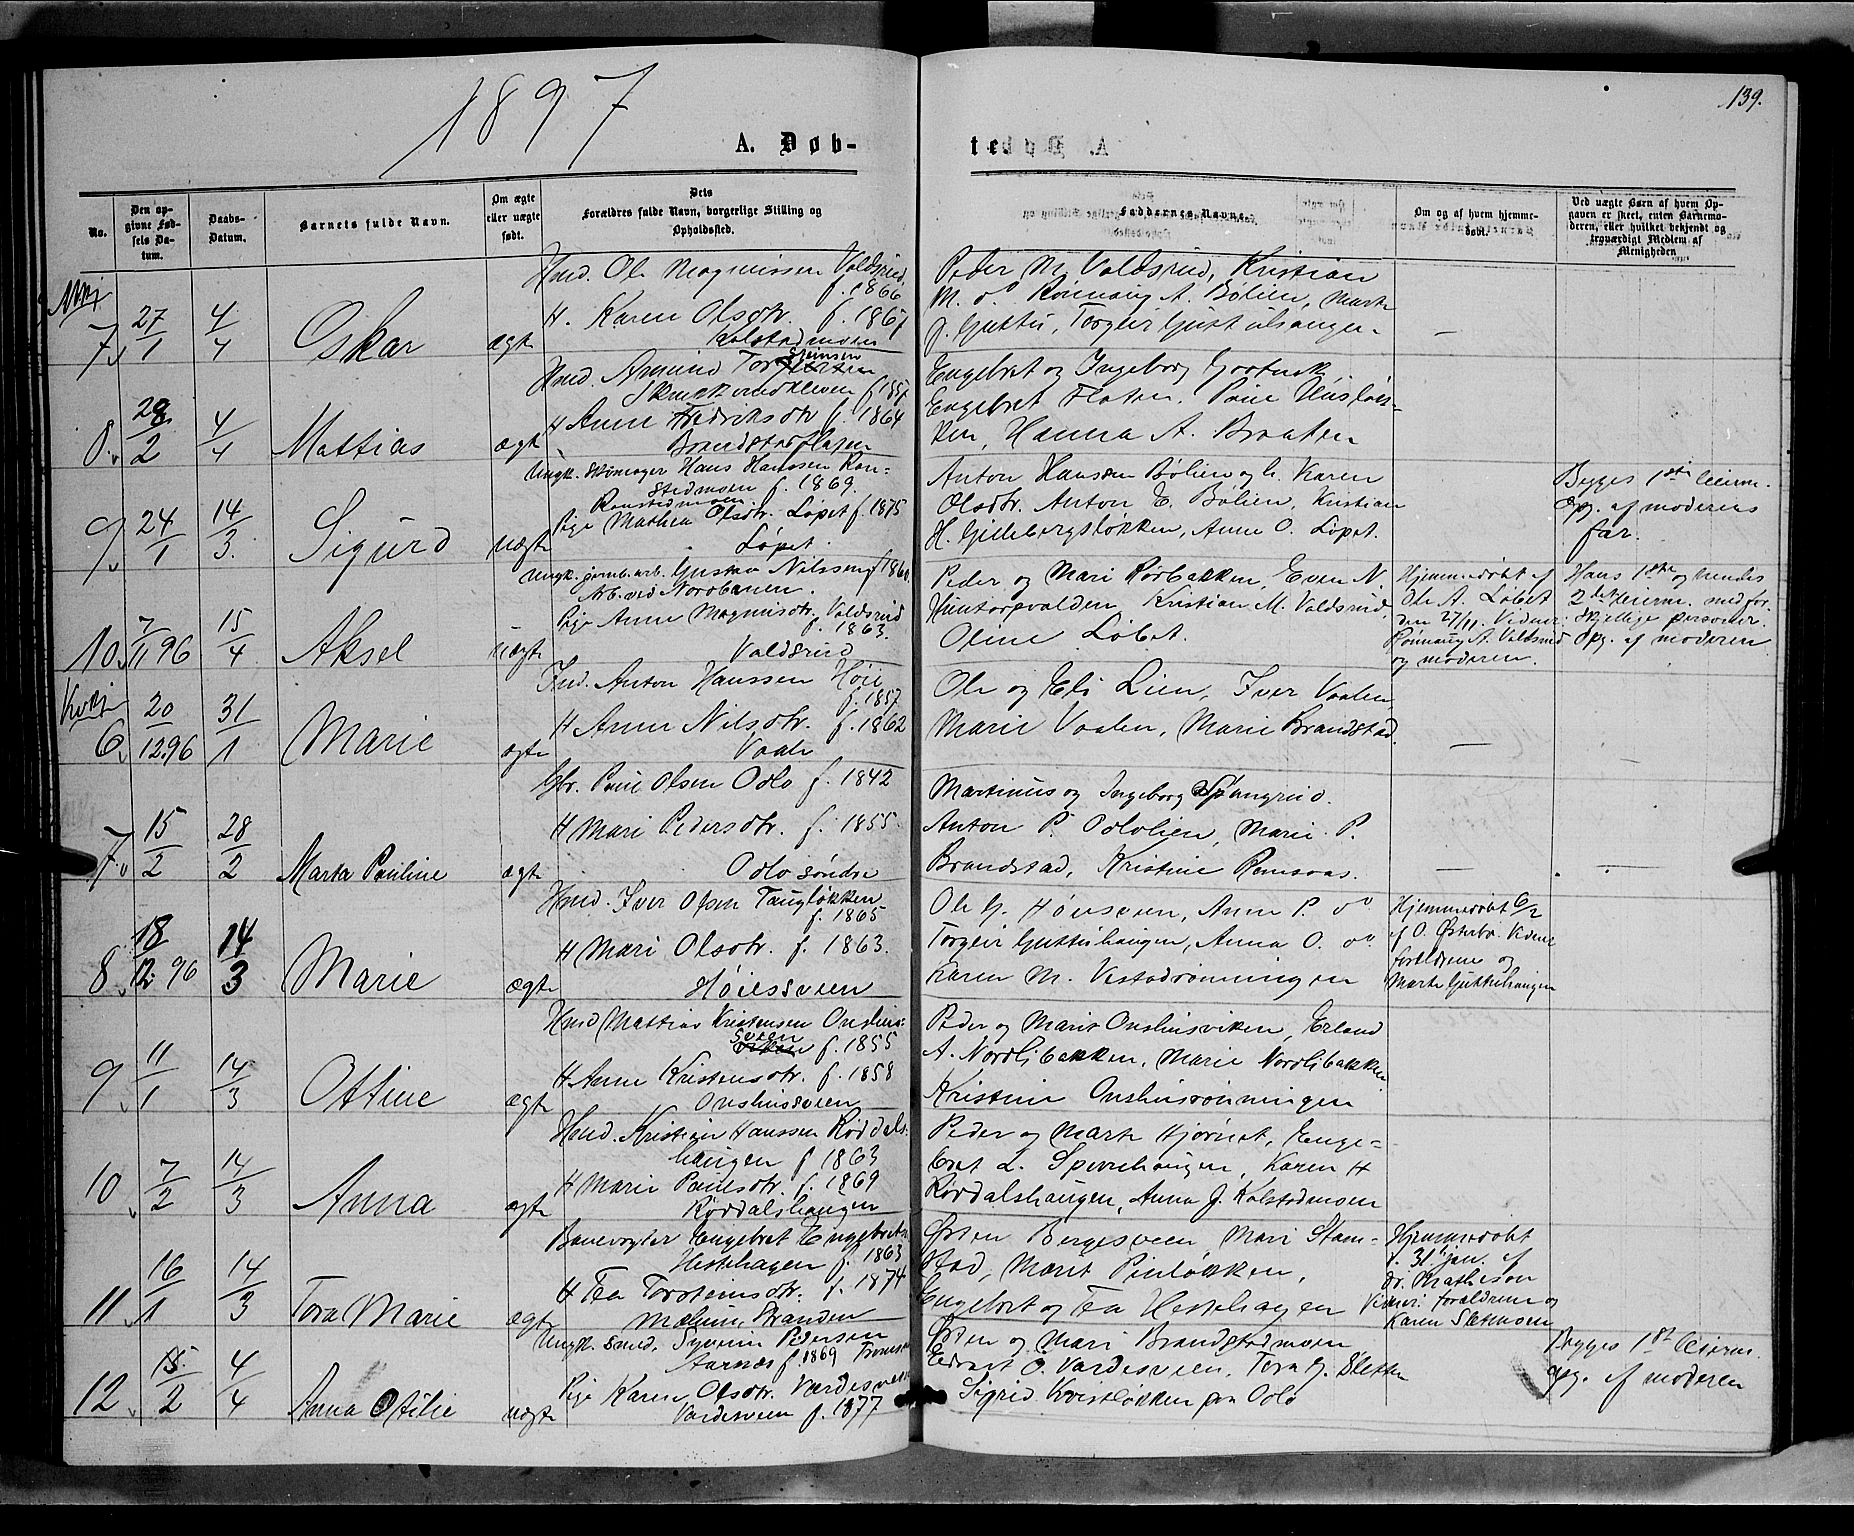 1897
139.
A. Døb-
te
No.
Den op-
givne Fød-
sels Da-
tum.
Daabs-
Datum.
Barnets fulde Navn.
Om ægte
eller uægte
født.
Dets
Forældres fulde Navn, borgerlige Stilling og
Opholdssted.
Faddernes Navne.
Om og af hvem hjemme-
døbt.
Ved uægte Børn af hvem Op-
gaven er skeet, enten Barnemo-
deren, eller hvilket bekjendt og
troværdigt Medlem af
Menigheden
7
27/1
4/4
Oskar
ægte
Hmd. Ole Magnussen Valdsrud
f. 1866
H. Karen Olsdtr. f. 1867
Kolstadmoen
Peder M. Valdsrud, Kristian
M. do Rønnaug A. Bølien, Marte
J. Guttu, Torgeir Gjutulsanger.
—
8.
28/2
4/4
Mattias
ægte
Hmd. Amund Torsteinsen
f. 1857
H Anne Fredriksdtr f. 1864
Engebret og Ingeborg
Engebret Floten, Paul
Hanna A. Braaten
9
24/1
14/3.
Sigurd
uægte
Ungk. skomager Hans Hanssen Ron-
stedmoen f. 1869.
Ronstedmoen.
Pige Mathea Olsdtr. Løpet f. 1875
Løpet.
Anton Hanssen Bølien og h. Karen
Olsdtr. Anton E. Bølien, Kristian
H. Gillebergsløkken, Anne O. Løpet.
Begges 1ste leierm.
Opg. af moderens
far.
10
7/11 96
15/4
Aksel
uægte
Ungk. jernb.arb. Gustav Nilssen f 1860.
Arb. ved Nordbanen.
Pige Anne Magnusdtr. Valdsrud
f. 1863.
Valdsrud
Peder og Mari Rørbakken, Even N.
Huntorpvalden, Kristian M. Valdsrud,
Oline Løbet.
Hjemmedøbt af
Ole A. Løbet
den 27/11. Vidner:
Rønnaug A. Valdsrud
og moderen.
Hans 1ste og hendes
2det leierm. med for-
skjellige personer.
Opg. af moderen
6
20/12 96
31/1
Marie
ægte
Ind. Anton Hanssen Høie
f. 1857
H Anne Nilsdtr. f. 1862
Vaale
Ole og Eli Lien, Iver Vaalen,
Marie Vaalen, Marie Brandstad.
—
—
7
15/2
28/2
Marta Pauline
ægte
Gbr. Paul Olsen Odlo f. 1842
H Mari Pedersdtr. f. 1855.
Odlo søndre
Martinus og Ingeborg Spangrud.
Anton P. Odlolien, Marie P.
Brandstad, Kristine Remsaas.
—
—
8
18/12 96
14/3
Marie
ægte
Hmd. Iver Olsen Taugløkken
f. 1865
H Mari Olsdtr. f. 1863.
Høiessveen
Ole G. Høiesveen, Anne P. do
Torgeir Guttuhaugen, Anna O. do
Karen M. Vestadrønningen
Hjemmedøbt 6/2
af O. Østerbø. Vidner
forældrene og
Marte Guttuhaugen
9
11/1
14/3
Ottine
ægte
Hmd Mattias Kristensen Onshus-
sveen
f. 1855
H Anne Kristensdtr. f. 1858
Onshussveen
Peder og Marit Onshusviken, Erland
A. Nordlibakken, Marie Nordlibakken
Kristine Onshusrønningen
10
7/2
14/3
Anna
ægte
Hmd. Kristian Hanssen Røddals-
haugen f 1863
H Marie Paulsdtr. f. 1869
Røddalshaugen
Peder og Marte Hjørnet, Enge-
bret L. Spurvehaugen, Karen H
Røddalshaugen, Anna J. Kolstadmoen
11
16/1
14/3
Tora Marie
ægte
Banevogter Engebret Engebrets
Hestehagen f. 1863
H Tea Torsteinsdtr. f. 1874
Mælum, Stranden
Østen Bergesveen Mari Stam-
stad, Marit Paulløkken,
Engebret og Tea Hestehagen
Hjemmedøbt
31 jan. af
dr. Matheson
Vidner: forældrene og
Karen Stensen
12
15/2
4/4
Anna Otilie
uægte
Ungk. smed, Syverin Pedersen
Aarnæs f. 1869 Tromsø
Pige Karen Olsdtr. Vardesveen
Vardesveen f. 1877
Østen og Mari Brandstadmoen
Edvart O. Vardesveen, Tora J. Sletten
Sigrid Kvestløkken paa Odlo
Begges 1ste leierm.
Opg. af moderen